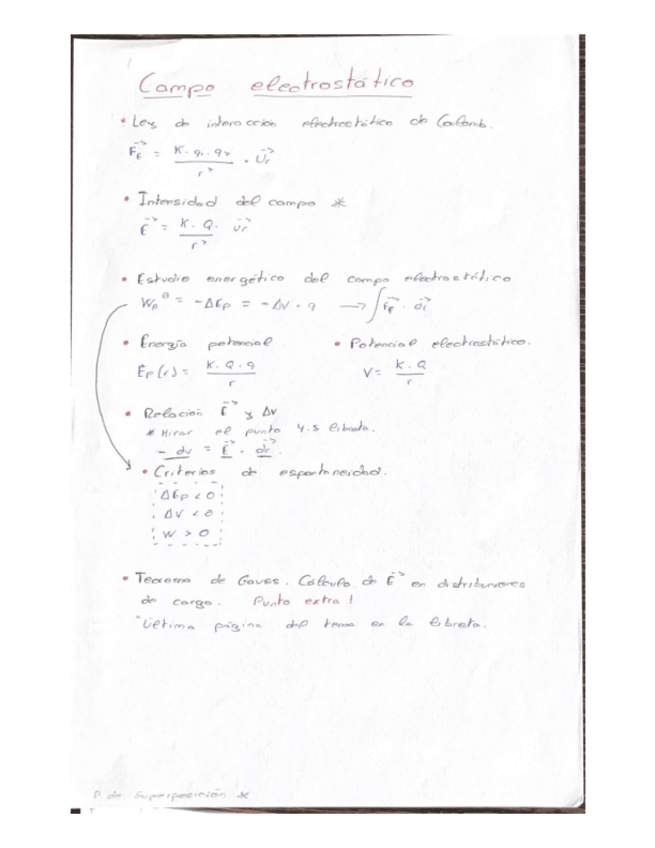 Campo electrostático
• Ley de interacción electrostática de Coulomb.
F⃗E = K · q₁ · q₂ / r² · U⃗r
• Intensidad del campo *
E⃗ = K · Q / r² · U⃗r
• Estudio energético del campo electrostático
Wp = -ΔEp = -ΔV · q → ∫ F⃗E · dr⃗
• Energía potencial
Ep(r) = K · Q · q / r
• Potencial electrostático.
V = K · Q / r
• Relación E⃗ y ΔV
* Mirar el punto 4.5 libreta.
- dv = E⃗ · dr⃗
• Criterios de espontaneidad.
ΔEp < 0
ΔV < 0
W > 0
• Teorema de Gauss. Cálculo de E⃗ en distribuciones
de carga. Punto extra!
Última página del tema en la libreta.
P. de Superposición *